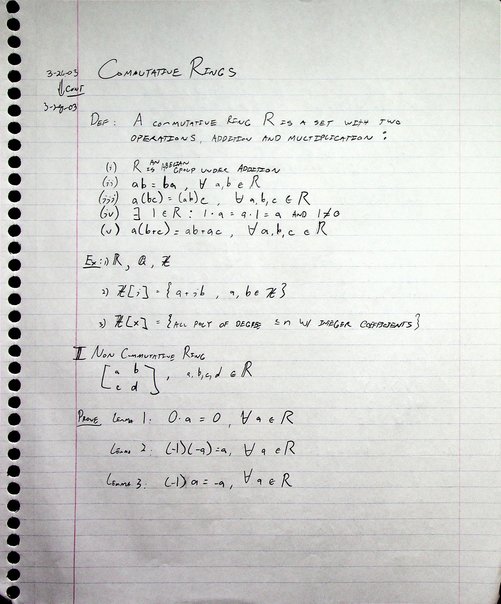 3-26-03 COMMUTATIVE RINGS
CONT
3-28-03
DEF: A COMMUTATIVE RING R IS A SET WITH TWO
OPERATIONS, ADDITION AND MULTIPLICATION:
(i) R IS AN ABELIAN GROUP UNDER ADDITION
(ii) ab = ba, ∀ a,b ∈ R
(iii) a(bc) = (ab)c, ∀ a,b,c ∈ R
(iv) ∃ 1 ∈ R : 1·a = a·1 = a AND 1≠0
(v) a(b+c) = ab+ac, ∀ a,b,c ∈ R
EX: 1) ℝ, ℚ, ℤ
2) ℤ[i] = {a+ib, a,b ∈ ℤ}
3) ℤ[x] = {ALL POLY OF DEGREE ≤ n W/ INTEGER COEFFICIENTS}
II NON COMMUTATIVE RING
[a b
c d], a,b,c,d ∈ ℝ
PROVE LEMMA 1: 0·a = 0, ∀ a ∈ R
LEMMA 2: (-1)(-a)=a, ∀ a ∈ R
LEMMA 3: (-1)a = -a, ∀ a ∈ R